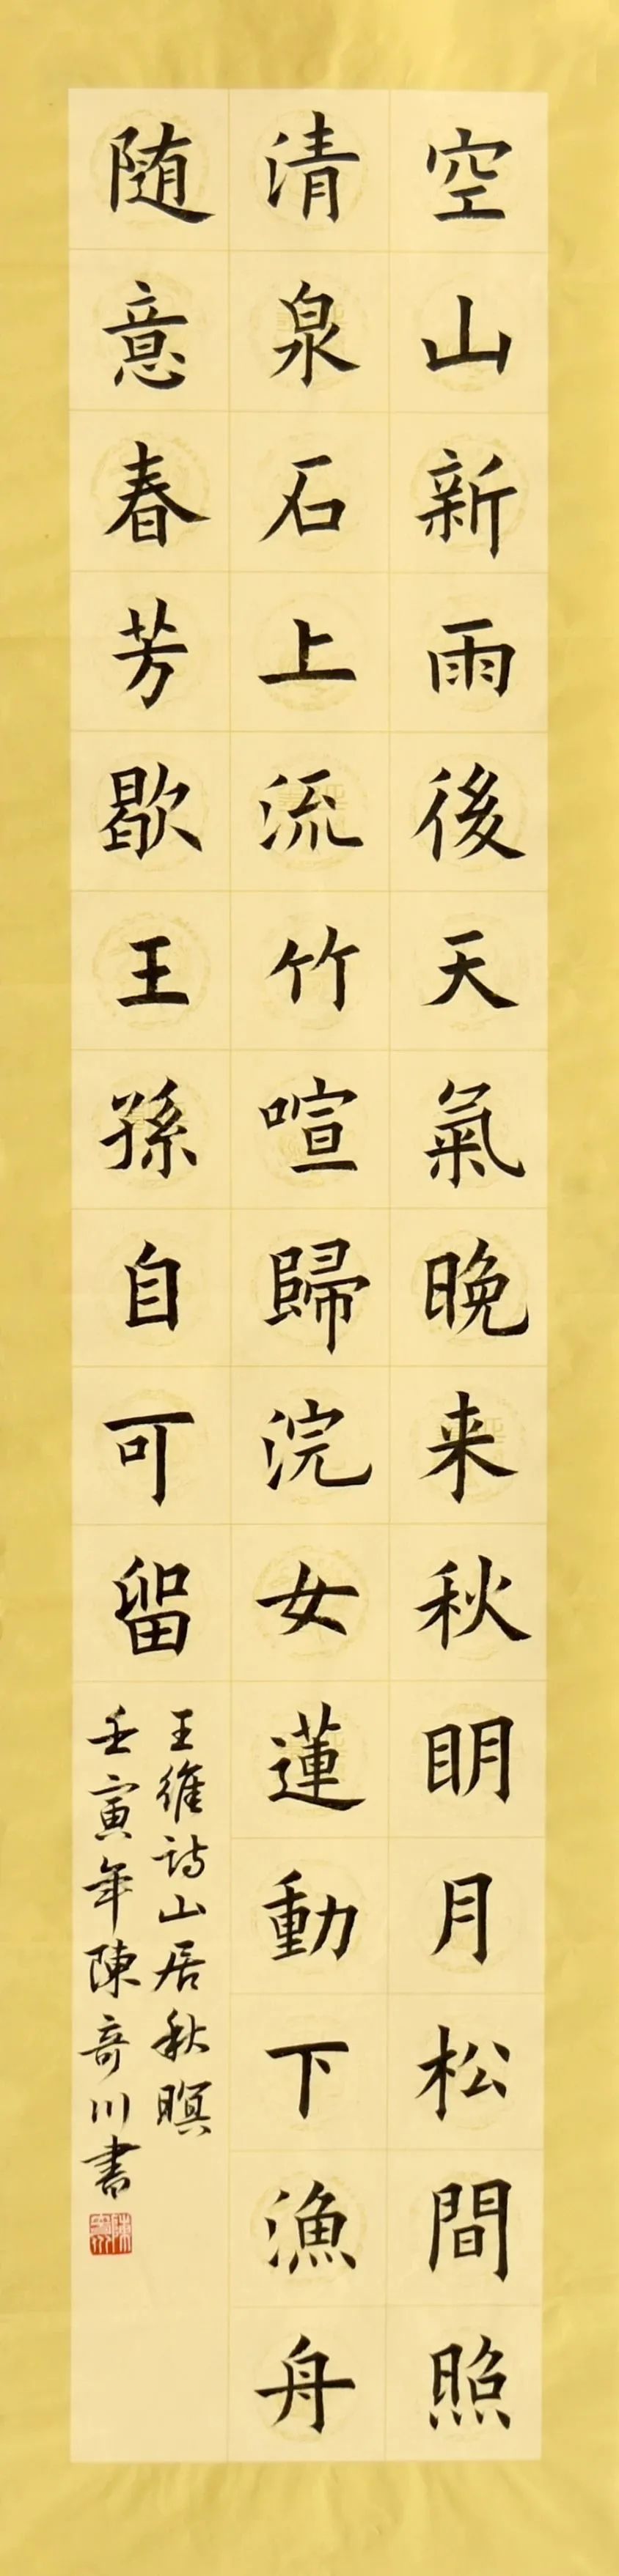 空山新雨後天氣晚来秋明月松間照
清泉石上流竹喧歸浣女蓮動下漁舟
随意春芳歇王孫自可留
王維詩山居秋暝
壬寅年陳奇川書